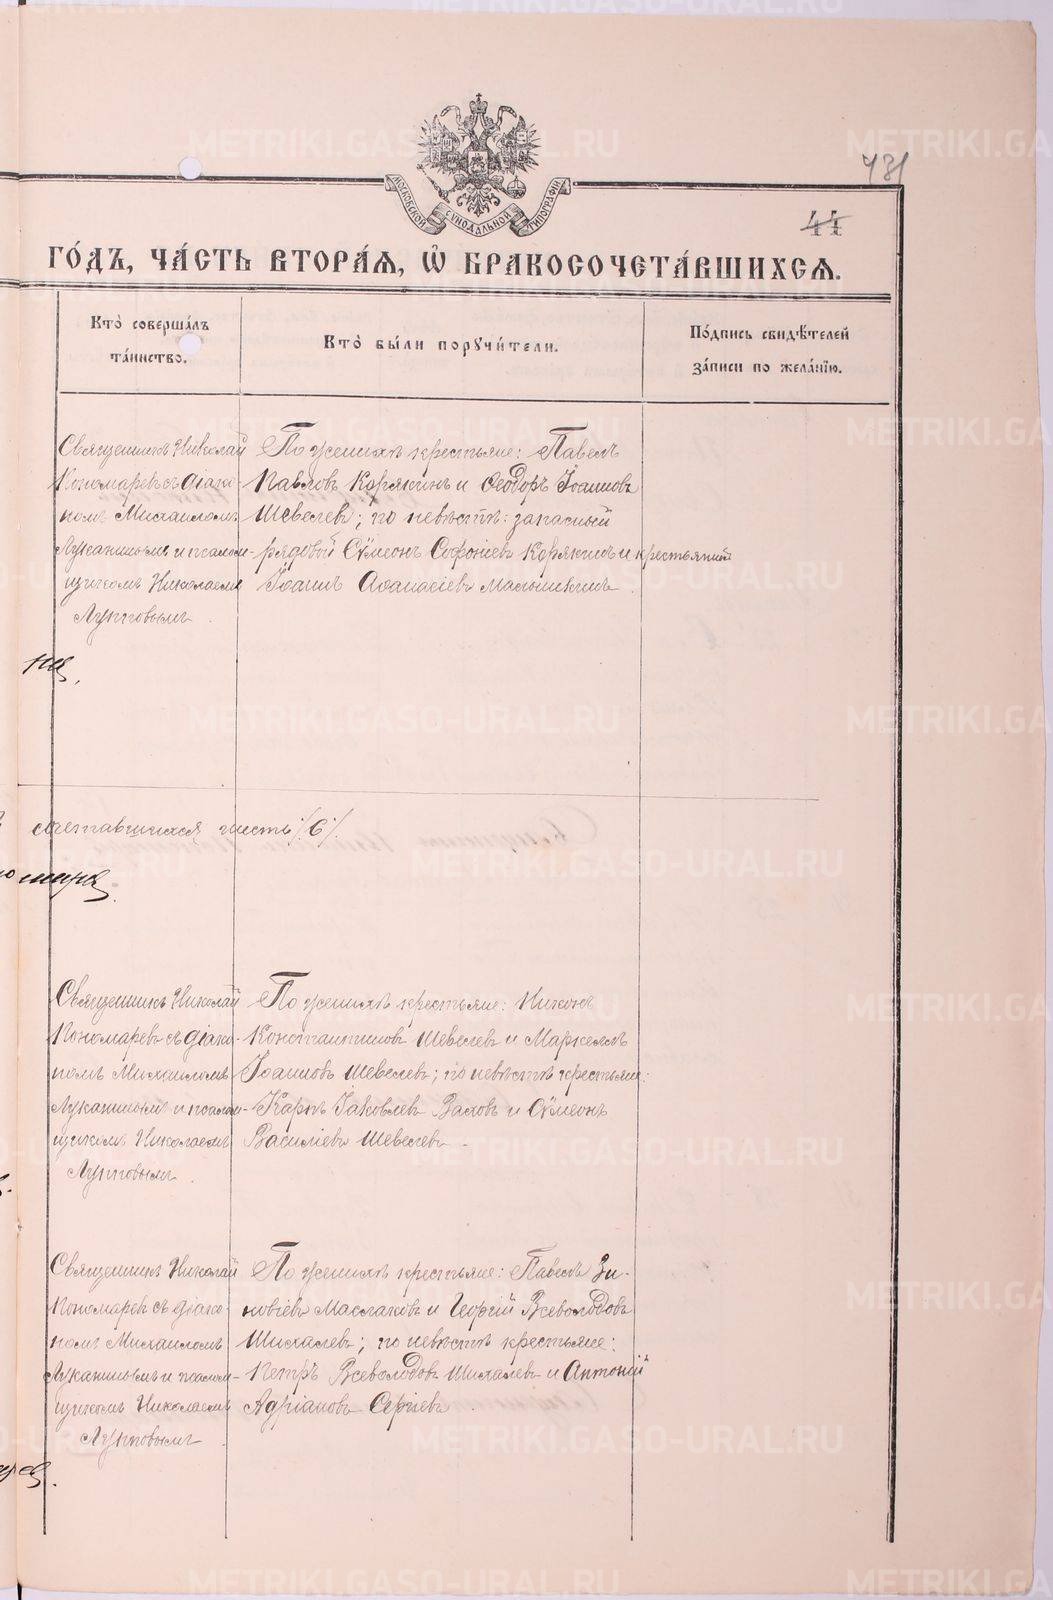 431
44
МОСКОВСКОЙ СѴНОДАЛЬНОЙ ТИПОГРАФІИ
ГО́ДЪ, ЧА́СТЬ ВТОРА́Ѧ, Ѽ БРАКОСОЧЕТА́ВШИХСѦ.
Кто̀ соверша́лъ
та́инство.
Кто̀ бы́ли порꙋчи́тели.
По́дпись свидѣ́телей
за́писи по жела́нїю.
Священникъ Николай
Пономаревъ съ діако-
номъ Михаиломъ
Луканинымъ и псалом-
щикомъ Николаемъ
Лупповымъ.
По женихѣ крестьяне: Павелъ
Павловъ Корякинъ и Ѳеодоръ Іоанновъ
Шевелевъ; по невѣстѣ: запасный
рядовой Сѵмеонъ Софоніевъ Корякинъ и крестьянинъ
Іоаннъ Аѳанасіевъ Малышкинъ.
на,
сочетавшихся шесть /6/.
мира
Священникъ Николай
Пономаревъ съ діако-
номъ Михаиломъ
Луканинымъ и псалом-
щикомъ Николаемъ
Лупповымъ.
По женихѣ крестьяне: Никонъ
Константиновъ Шевелевъ и Маркеллъ
Іоанновъ Шевелевъ; по невѣстѣ крестьяне:
Карпъ Іаковлевъ Валовъ и Сѵмеонъ
Василіевъ Шевелевъ.
Священникъ Николай
Пономаревъ съ діако-
номъ Михаиломъ
Луканинымъ и псалом-
щикомъ Николаемъ
Лупповымъ.
По женихѣ крестьяне: Павелъ Зи-
новіевъ Маслаковъ и Георгій Всеволодовъ
Шихалевъ; по невѣстѣ крестьяне:
Петръ Всеволодовъ Шихалевъ и Антоній
Адріановъ Сергѣевъ.
METRIKI.GASO-URAL.RU